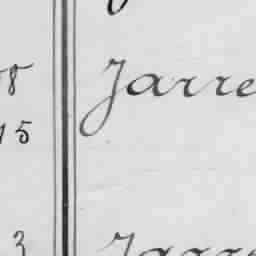 8 Jarre
15
3 Jarre